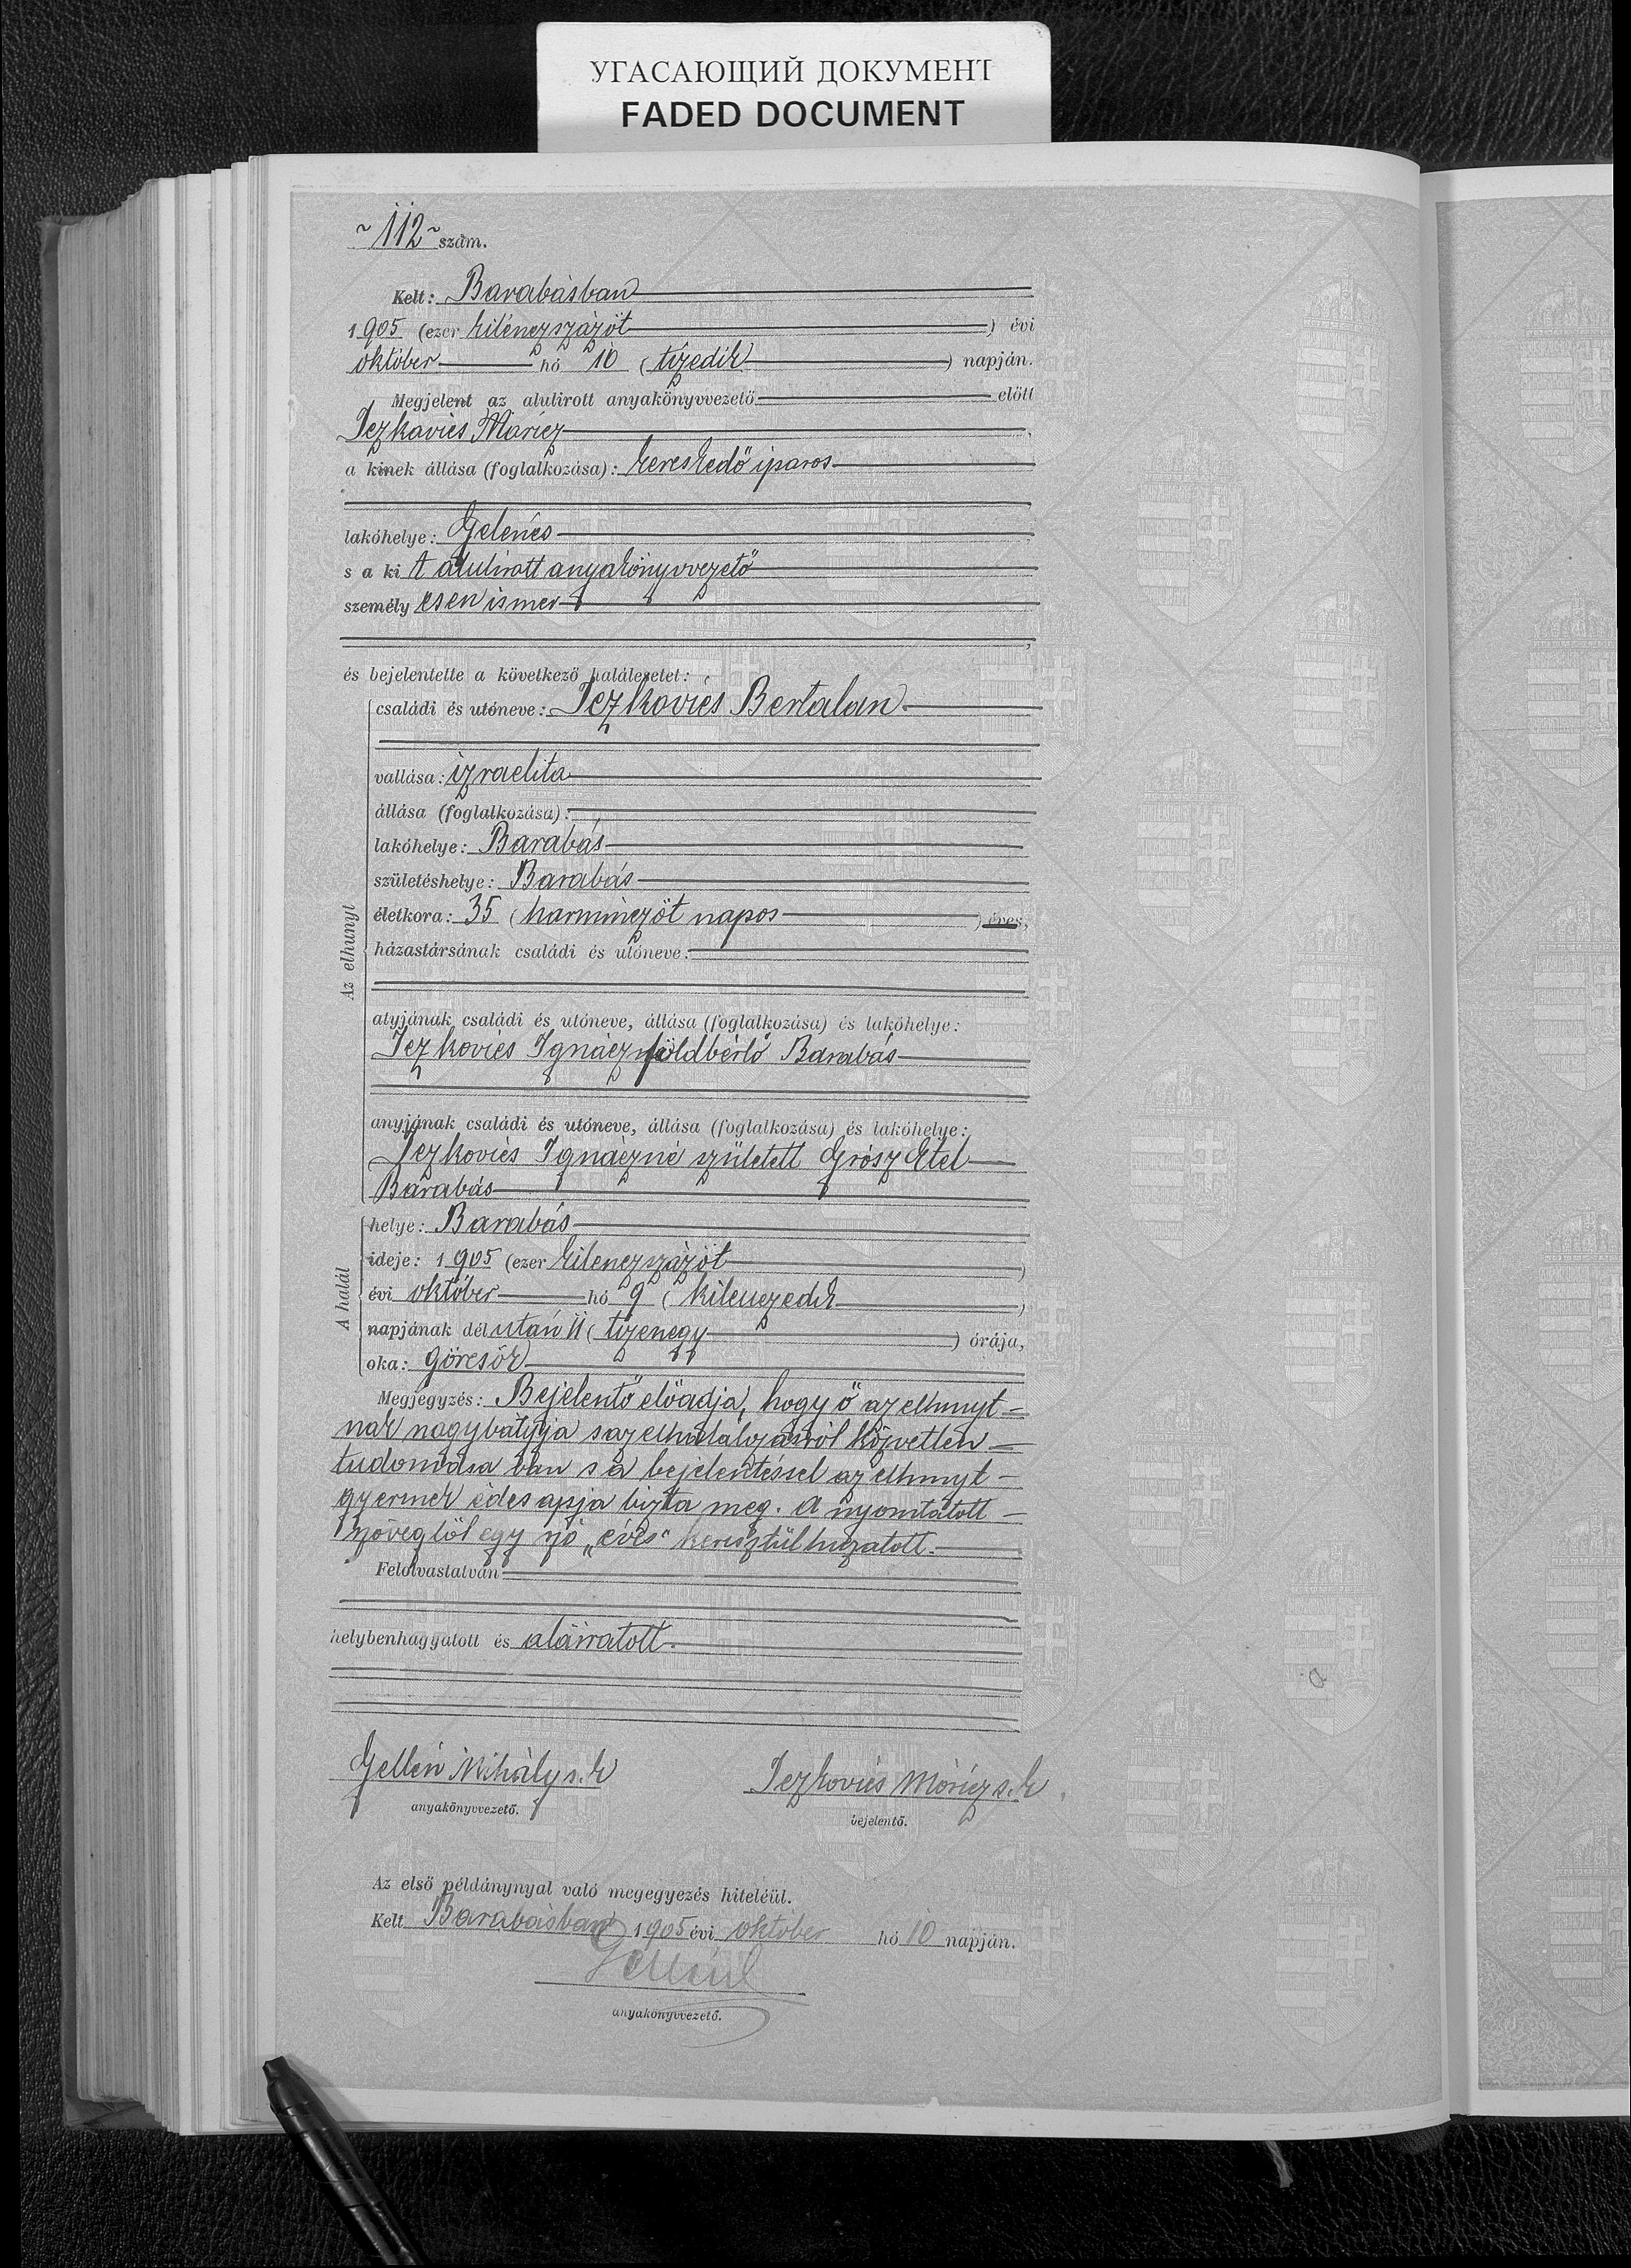 УГАСАЮЩИЙ ДОКУМЕНТ
FADED DOCUMENT
112 szám.
Kelt: Barabásban
1905 (ezer kilenczszázöt) évi
október hó 10 (tizedik) napján.
Megjelent az alulirott anyakönyvvezető előtt
Iczkovics Móricz,
a kinek állása (foglalkozása): kereskedő iparos
lakóhelye: Gelénes,
s a kit alulirott anyakönyvvezető
személyesen ismer,
és bejelentette a következő halálesetet:
Az elhunyt
családi és utóneve: Iczkovics Bertalan
vallása: izraelita
állása (foglalkozása):
lakóhelye: Barabás
születéshelye: Barabás
életkora: 35 (harminczöt napos) éves,
házastársának családi és utóneve:
atyjának családi és utóneve, állása (foglalkozása) és lakóhelye:
Iczkovics Ignácz földbérlő Barabás
anyjának családi és utóneve, állása (foglalkozása) és lakóhelye:
Iczkovics Ignáczné született Grósz Etel
Barabás
A halál
helye: Barabás
ideje: 1905 (ezer kilenczszázöt)
évi október hó 9 (kilenczedik)
napjának délután 11 (tizenegy) órája,
oka: görcsök
Megjegyzés: Bejelentő előadja, hogy ő az elhunyt-
nak nagybátyja s az elhalálozásról közvetlen
tudomása van s a bejelentéssel az elhunyt
gyermek édes apja bizta meg. A nyomtatott
szövegből egy szó „éves" keresztül huzatott.
Felolvastatván
helybenhagyatott és aláiratott.
Gellén Mihály s.k
anyakönyvvezető.
Iczkovics Móricz s.k.
bejelentő.
Az első példánynyal való megegyezés hiteléül.
Kelt Barabásban 1905 évi október hó 10 napján.
Gellén
anyakönyvvezető.